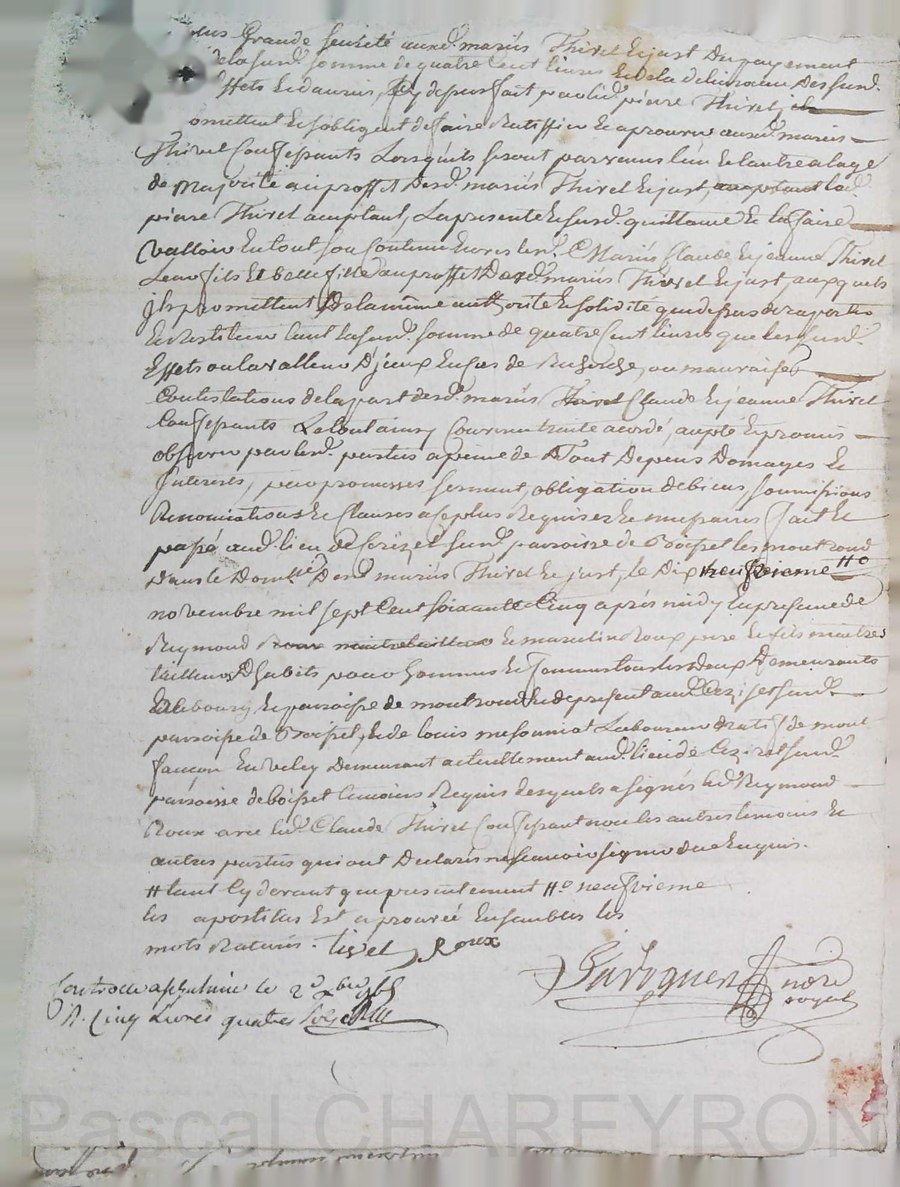 plus Grande seureté auxd. mariés Thivel Lejast Du payement
dela surd. somme de quatre Cent livres Et de la delivrance Des surd.
Effets Cy devant, Cy depus fait par led. piere Thivel,
omettent Et sobligent de faire Ratiffier Et aprouver auxd. mariés
Thivel Confessants Lorsquils seront parvenus lun Et lautre a lage
de Majorité au proffit Desd. mariés Thivel Lejast,
piere Thivel aceptant, La presente Et surd. quittance Et la faire
valloir En tout son Contenu Envers les Mariés Claude Lejeune Thivel
Leur fils Et belle fille au proffit Desd. mariés Thivel Lejast auxquels
Ils promettent De la même authorité Et solidité que dessus de raporter
Et Restituer tant la surd. somme de quatre Cent livres que les surd.
Effets ou la valleur D'iceux En cas de Recherche, ou mauvaises
Contestations de la part desd. mariés Thivel Claude Lejeune Thivel
Confessants Le Contenu Convenu traité acordé, acepté Et promis
observer par les parties a peine de Tout Depens Domages Et
Interets, par promesses serment, obligation de biens, soumissions
Renonciations Et Clauses a ce plus Requises Et necessaires fait Et
passé aud. lieu de Cerizet surd. paroisse de Boisset les montrond
Dans le Domlle Desd. mariés Thivel Lejast, le Dix neufvieme #
novembre mil sept Cent soixante Cinq après midy En presence de
Reymond Roux maitre tailleur Et marcelin Roux pere Et fils maitres
tailleurs D'habits pour hommes Et femmes tous les deux Demeurants
Au bourg Et paroisse de montrond Et de present aud. Cerizet surd.
paroisse de Boisset, Et de Louis Laboureur Natif de mont
faucon En velay Demeurant actuellement aud. lieu de Cezizet surd.
paroisse de boisset temoins Requis Lesquels a signés led. Reymond
Roux avec led. Claude Thivel Confessant non les autres temoins Et
autres parties qui ont Declarés ne scavoir signer de ce Enquis.
# tant Cy devant que presentement # neufvieme
les apostilles Est aprouvéé Ensembles les
mots Raturés. tivel Roux
Controllé a le 2e xbre 1765
R. Cinq Livres quatre sols
nore
royal
Pascal CHAREYRON